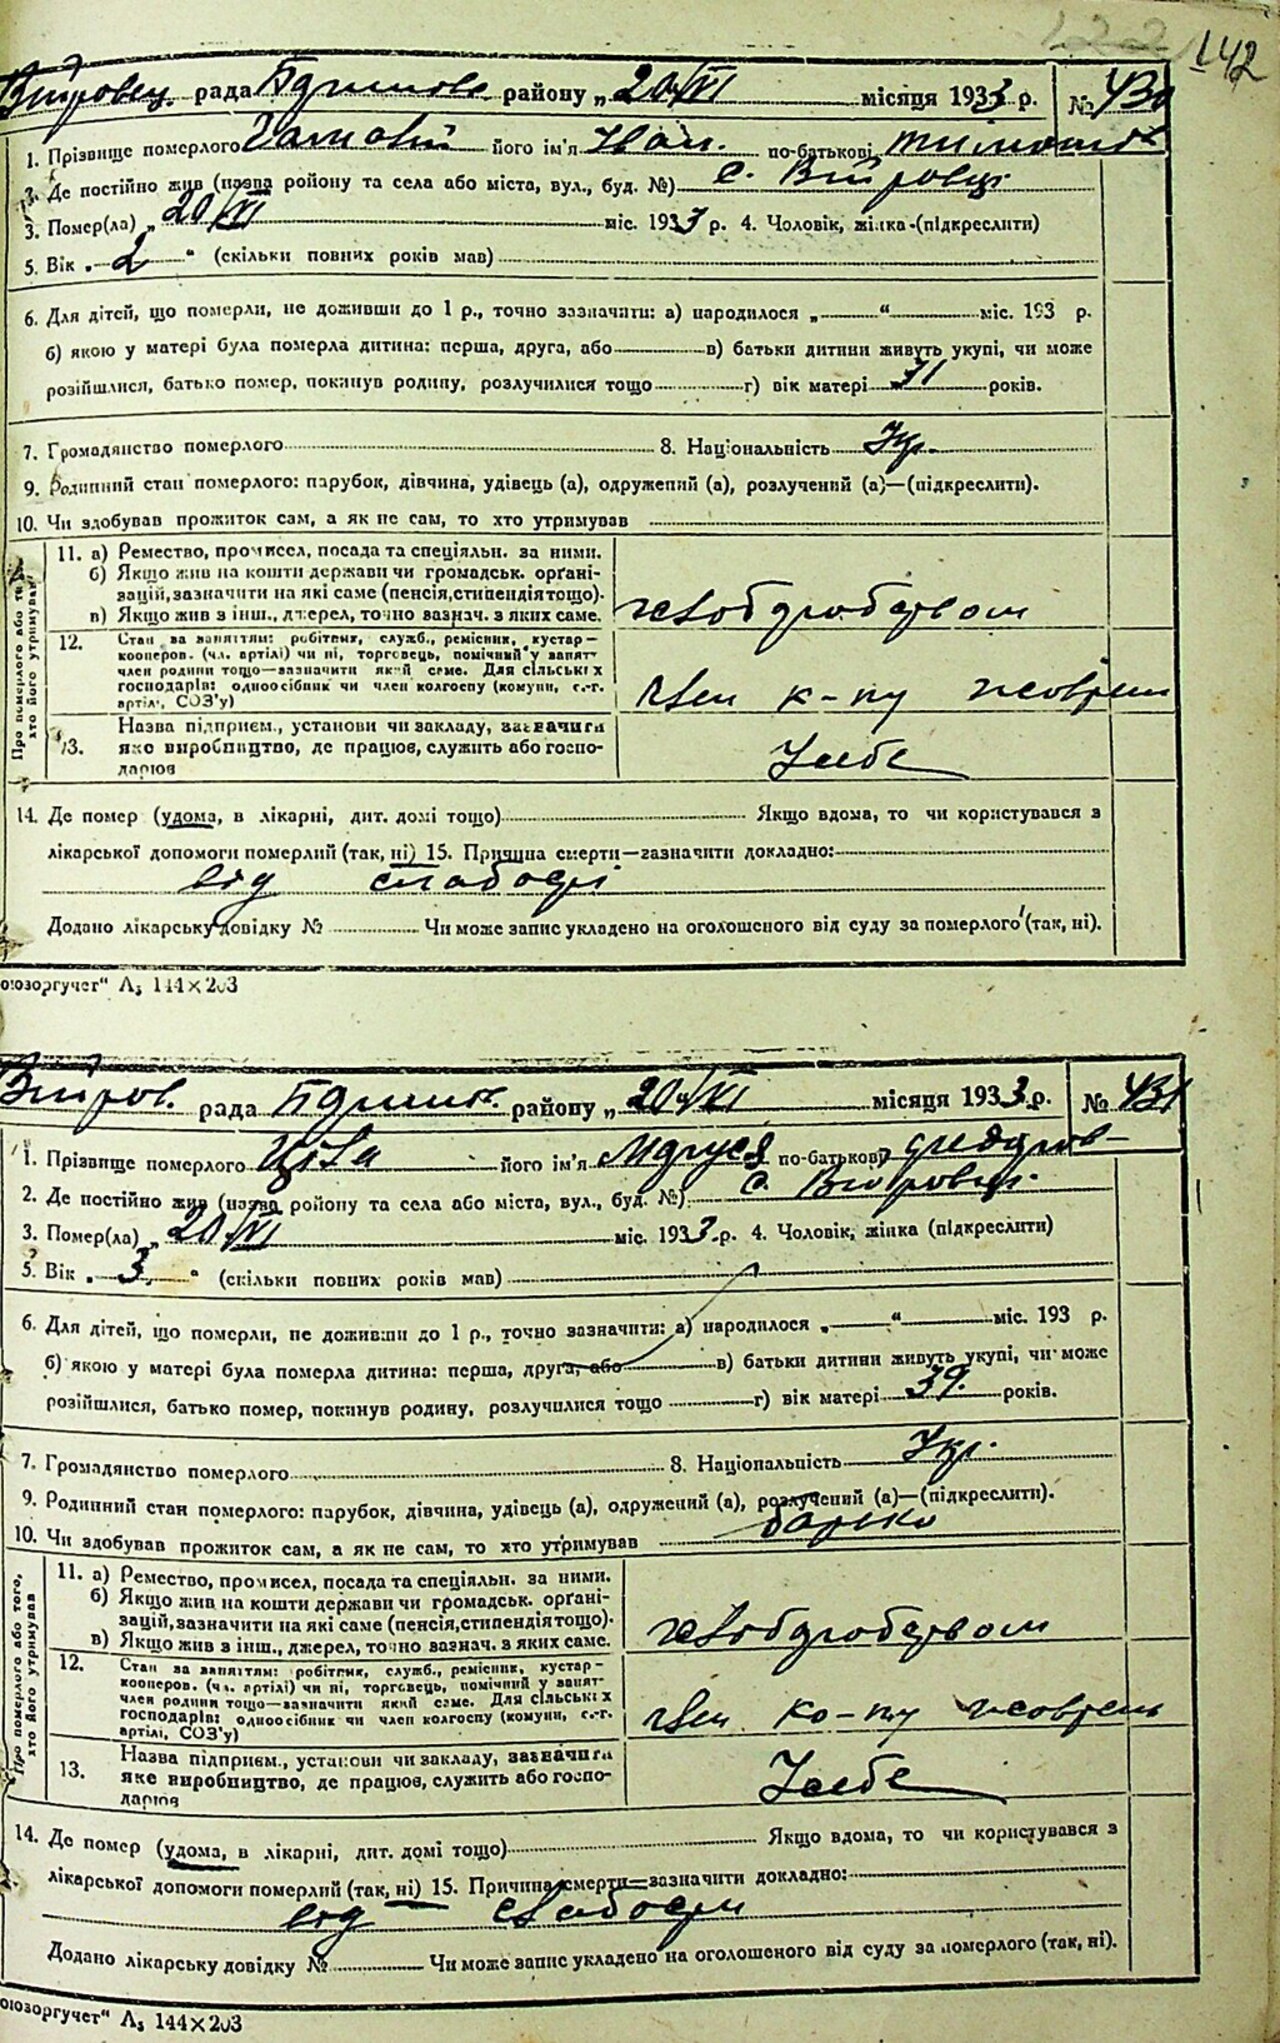 122 142
рада районy „ 20/VI місяця 1933 р. № 430
1. Прізвище померлого його ім'я Іван. по-батькові
2. Де постійно жив (назва ройону та села або міста, вул., буд. №) с. Війтовці
3. Помер(ла) „ 20/VI міс. 1933 р. 4. Чоловік, жінка-(підкреслити)
5. Вік „ 2 “ (скільки повних років мав)
6. Для дітей, що померли, не доживши до 1 р., точно зазначити: а) народилося „ “ міс. 193 р.
б) якою у матері була померла дитина: перша, друга, або в) батьки дитини живуть укупі, чи може
розійшлися, батько помер, покинув родину, розлучилися тощо г) вік матері 31 років.
7. Громадянство померлого 8. Національність Укр.
9. Родинний стан померлого: парубок, дівчина, удівець (а), одружений (а), розлучений (а)—(підкреслити).
10. Чи здобував прожиток сам, а як не сам, то хто утримував
Про померлого або того, хто його утримував
11. а) Ремество, промисел, посада та спеціяльн. за ними.
б) Якщо жив на кошти держави чи громадськ. орґані-
зацій, зазначити на які саме (пенсія, стипендія тощо).
в) Якщо жив з інш., джерел, точно зазнач. з яких саме.
хліборобством
12. Стан за заняттям: робітник, служб., ремісник, кустар—
кооперов. (чл. артілі) чи ні, торговець, помічний у занят-
член родини тощо—зазначити який саме. Для сільських
господарів: одноосібник чи член колгоспу (комуни, с.-г.
артілі, СОЗ'у)
член к-пу
13. Назва підприєм., установи чи закладу, зазначити
яке виробництво, де працює, служить або госпо-
дарює
У себе
14. Де помер (удома, в лікарні, дит. домі тощо) Якщо вдома, то чи користувався з
лікарської допомоги померлий (так, ні) 15. Причина смерти—зазначити докладно:
від слабості
Додано лікарську довідку № Чи може запис укладено на оголошеного від суду за померлого (так, ні).
оюзоргучет“ А₅ 144×203
рада районy „ 20/VI місяця 1933 р. № 431
1. Прізвище померлого Ціла його ім'я Маруся по-батькові Федоров-
2. Де постійно жив (назва ройону та села або міста, вул., буд. №) с. Війтовці
3. Помер(ла) „ 20/VI міс. 1933 р. 4. Чоловік, жінка (підкреслити)
5. Вік „ 3 “ (скільки повних років мав)
6. Для дітей, що померли, не доживши до 1 р., точно зазначити: а) народилося „ “ міс. 193 р.
б) якою у матері була померла дитина: перша, друга, або в) батьки дитини живуть укупі, чи може
розійшлися, батько помер, покинув родину, розлучилися тощо г) вік матері 39. років.
7. Громадянство померлого 8. Національність Укр.
9. Родинний стан померлого: парубок, дівчина, удівець (а), одружений (а), розлучений (а)—(підкреслити).
10. Чи здобував прожиток сам, а як не сам, то хто утримував батько
Про померлого або того, хто його утримував
11. а) Ремество, промисел, посада та спеціяльн. за ними.
б) Якщо жив на кошти держави чи громадськ. орґані-
зацій, зазначити на які саме (пенсія, стипендія тощо).
в) Якщо жив з інш., джерел, точно зазнач. з яких саме.
хліборобством
12. Стан за заняттям: робітник, служб., ремісник, кустар—
кооперов. (чл. артілі) чи ні, торговець, помічний у занят-
член родини тощо—зазначити який саме. Для сільських
господарів: одноосібник чи член колгоспу (комуни, с.-г.
артілі, СОЗ'у)
член ко-пу
13. Назва підприєм., установи чи закладу, зазначити
яке виробництво, де працює, служить або госпо-
дарює
У себе
14. Де помер (удома, в лікарні, дит. домі тощо) Якщо вдома, то чи користувався з
лікарської допомоги померлий (так, ні) 15. Причина смерти—зазначити докладно:
від слабости
Додано лікарську довідку № Чи може запис укладено на оголошеного від суду за померлого (так, ні).
оюзоргучет“ А₅ 144×203